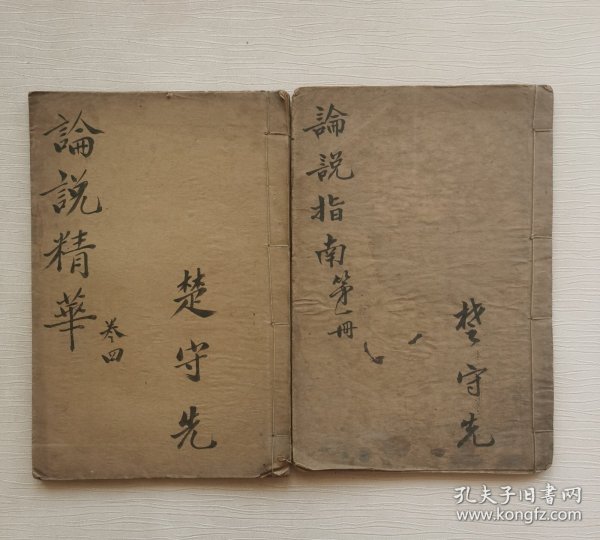 論說精華
卷四
楚守先
論說指南第一冊
楚守先
孔夫子旧书网
www.kongfz.com